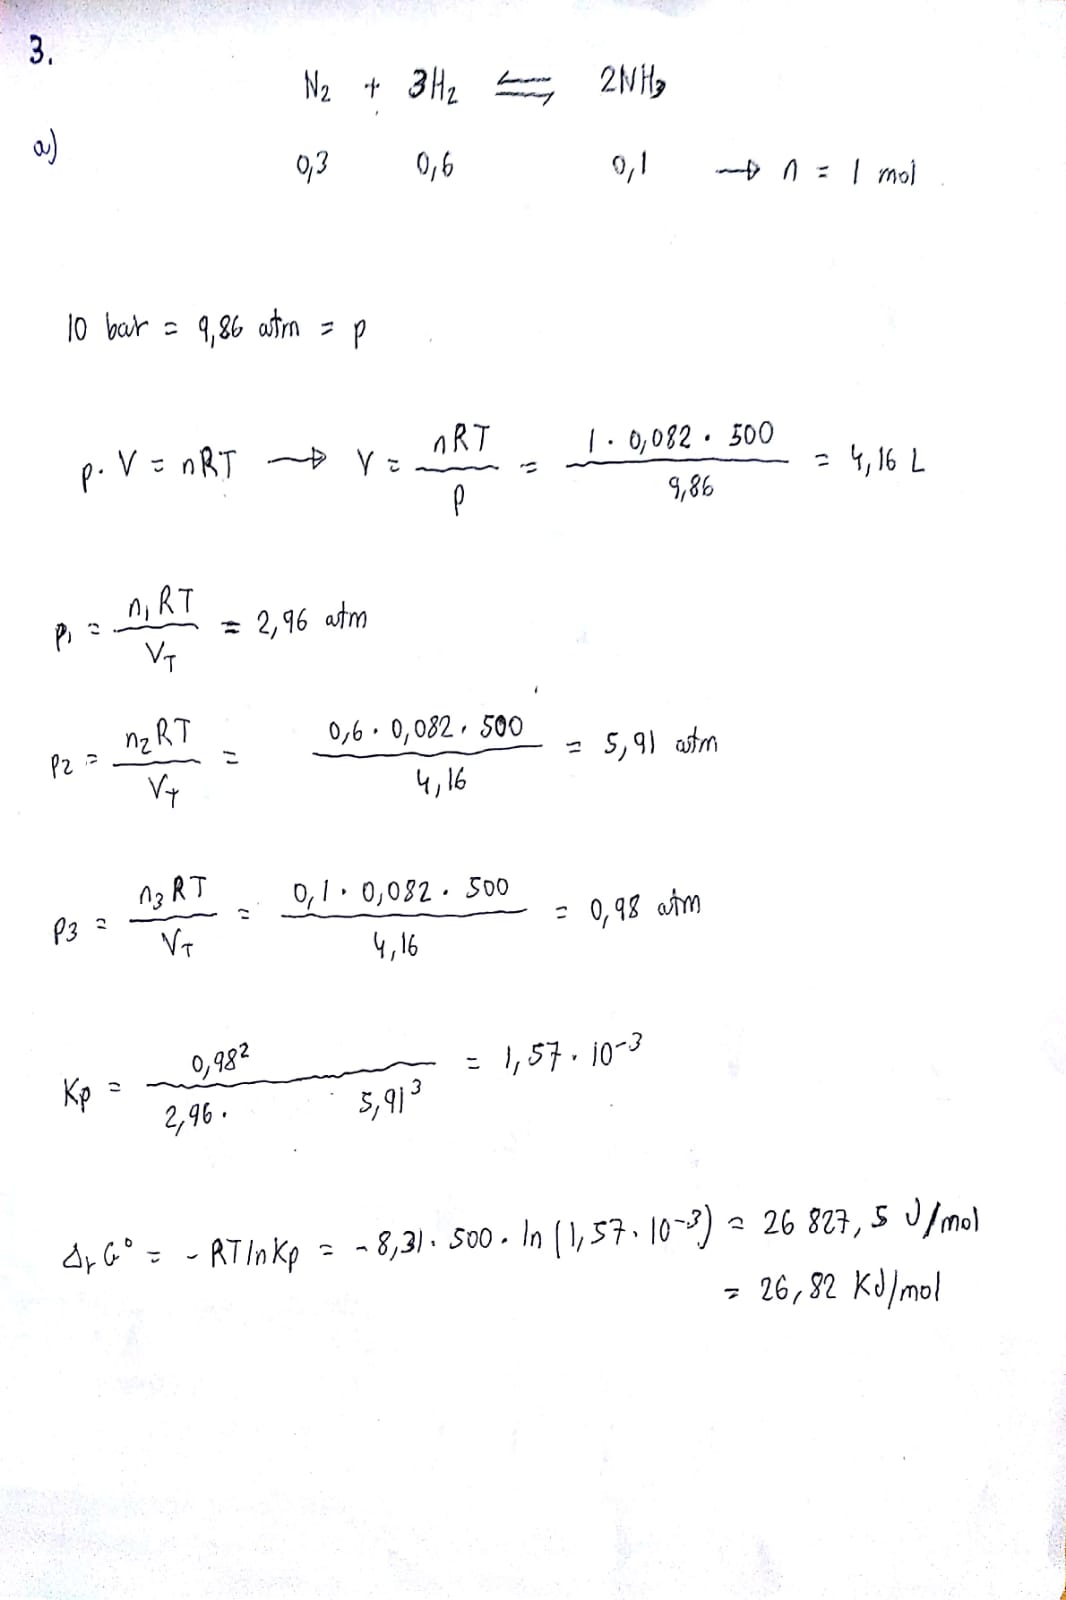 3.
N₂ + 3H₂ ⇌ 2NH₃
a)
0,3 0,6 0,1 → n = 1 mol
10 bar = 9,86 atm = p
p · V = nRT → V = nRT / p = 1 · 0,082 · 500 / 9,86 = 4,16 L
p₁ = n₁RT / V_T = 2,96 atm
p₂ = n₂RT / V_T = 0,6 · 0,082 · 500 / 4,16 = 5,91 atm
p₃ = n₃RT / V_T = 0,1 · 0,082 · 500 / 4,16 = 0,98 atm
Kp = 0,98² / 2,96 · 5,91³ = 1,57 · 10⁻³
ΔᵣG° = - RT ln Kp = - 8,31 · 500 · ln (1,57 · 10⁻³) = 26 827,5 J/mol
= 26,82 KJ/mol